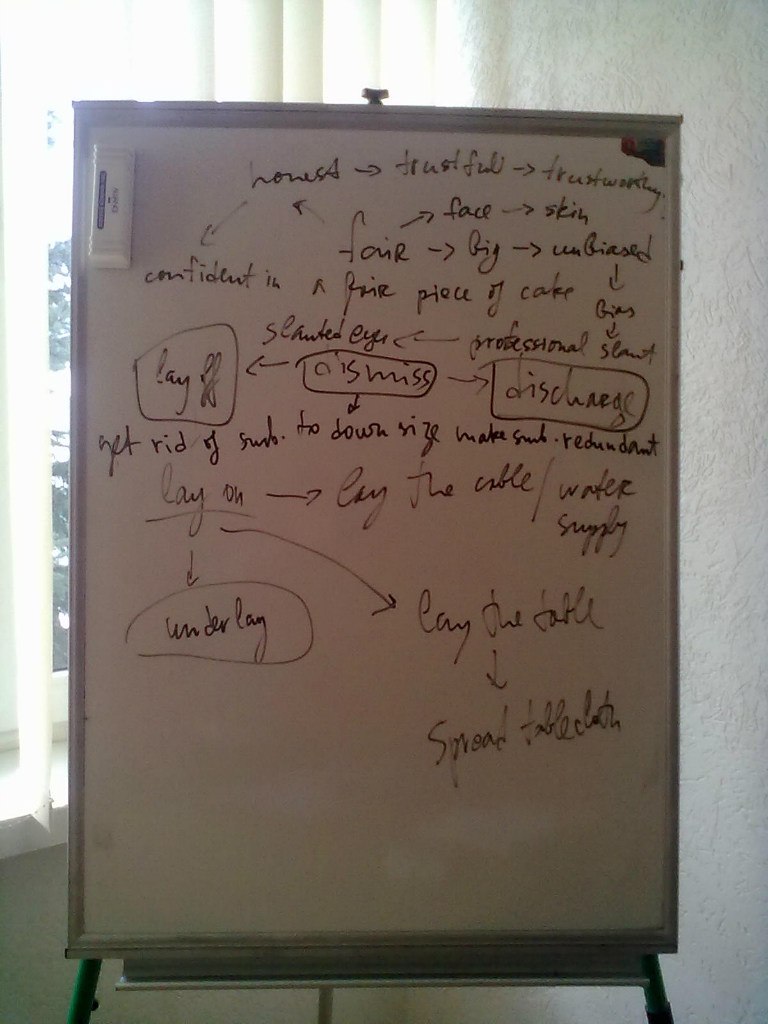 honest → trustfull → trustworthy
face → skin
fair → big → unBiased
confident in a fair piece of cake
Bias
slanted eyes ← professional slant
lay off ← dismiss → discharge
get rid of smb. to down size make smb. redundant
lay on → lay the cable / water
supply
underlay
lay the table
Spread tablecloth